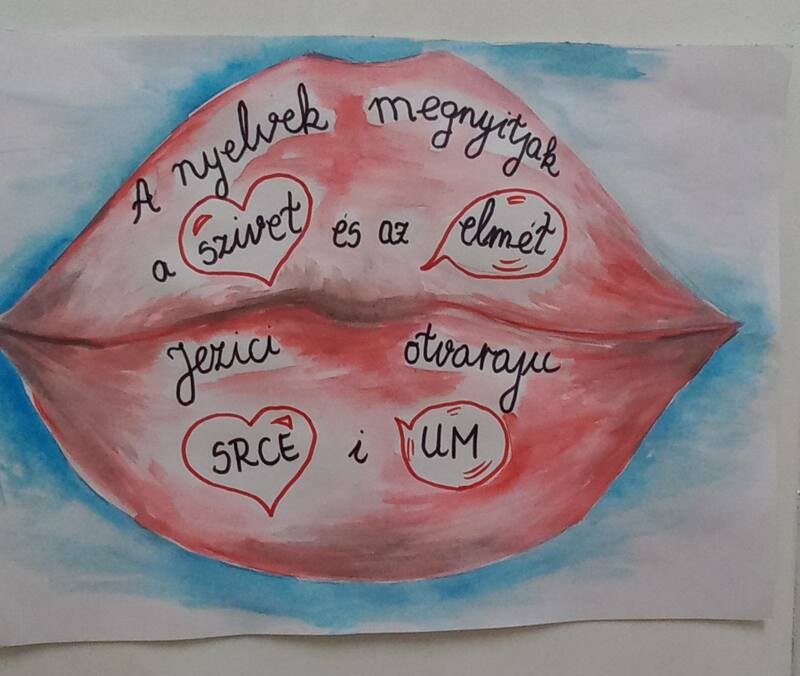 A nyelvek megnyitják
a szivet és az elmét
Jezici otvaraju
SRCE i UM